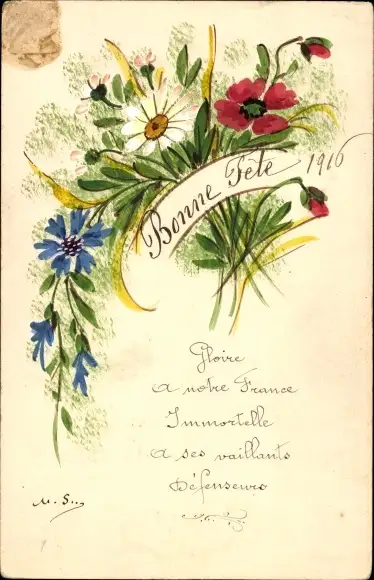 Bonne Fête 1916
Gloire
A notre France
Immortelle
A ses vaillants
Défenseurs
M. S...